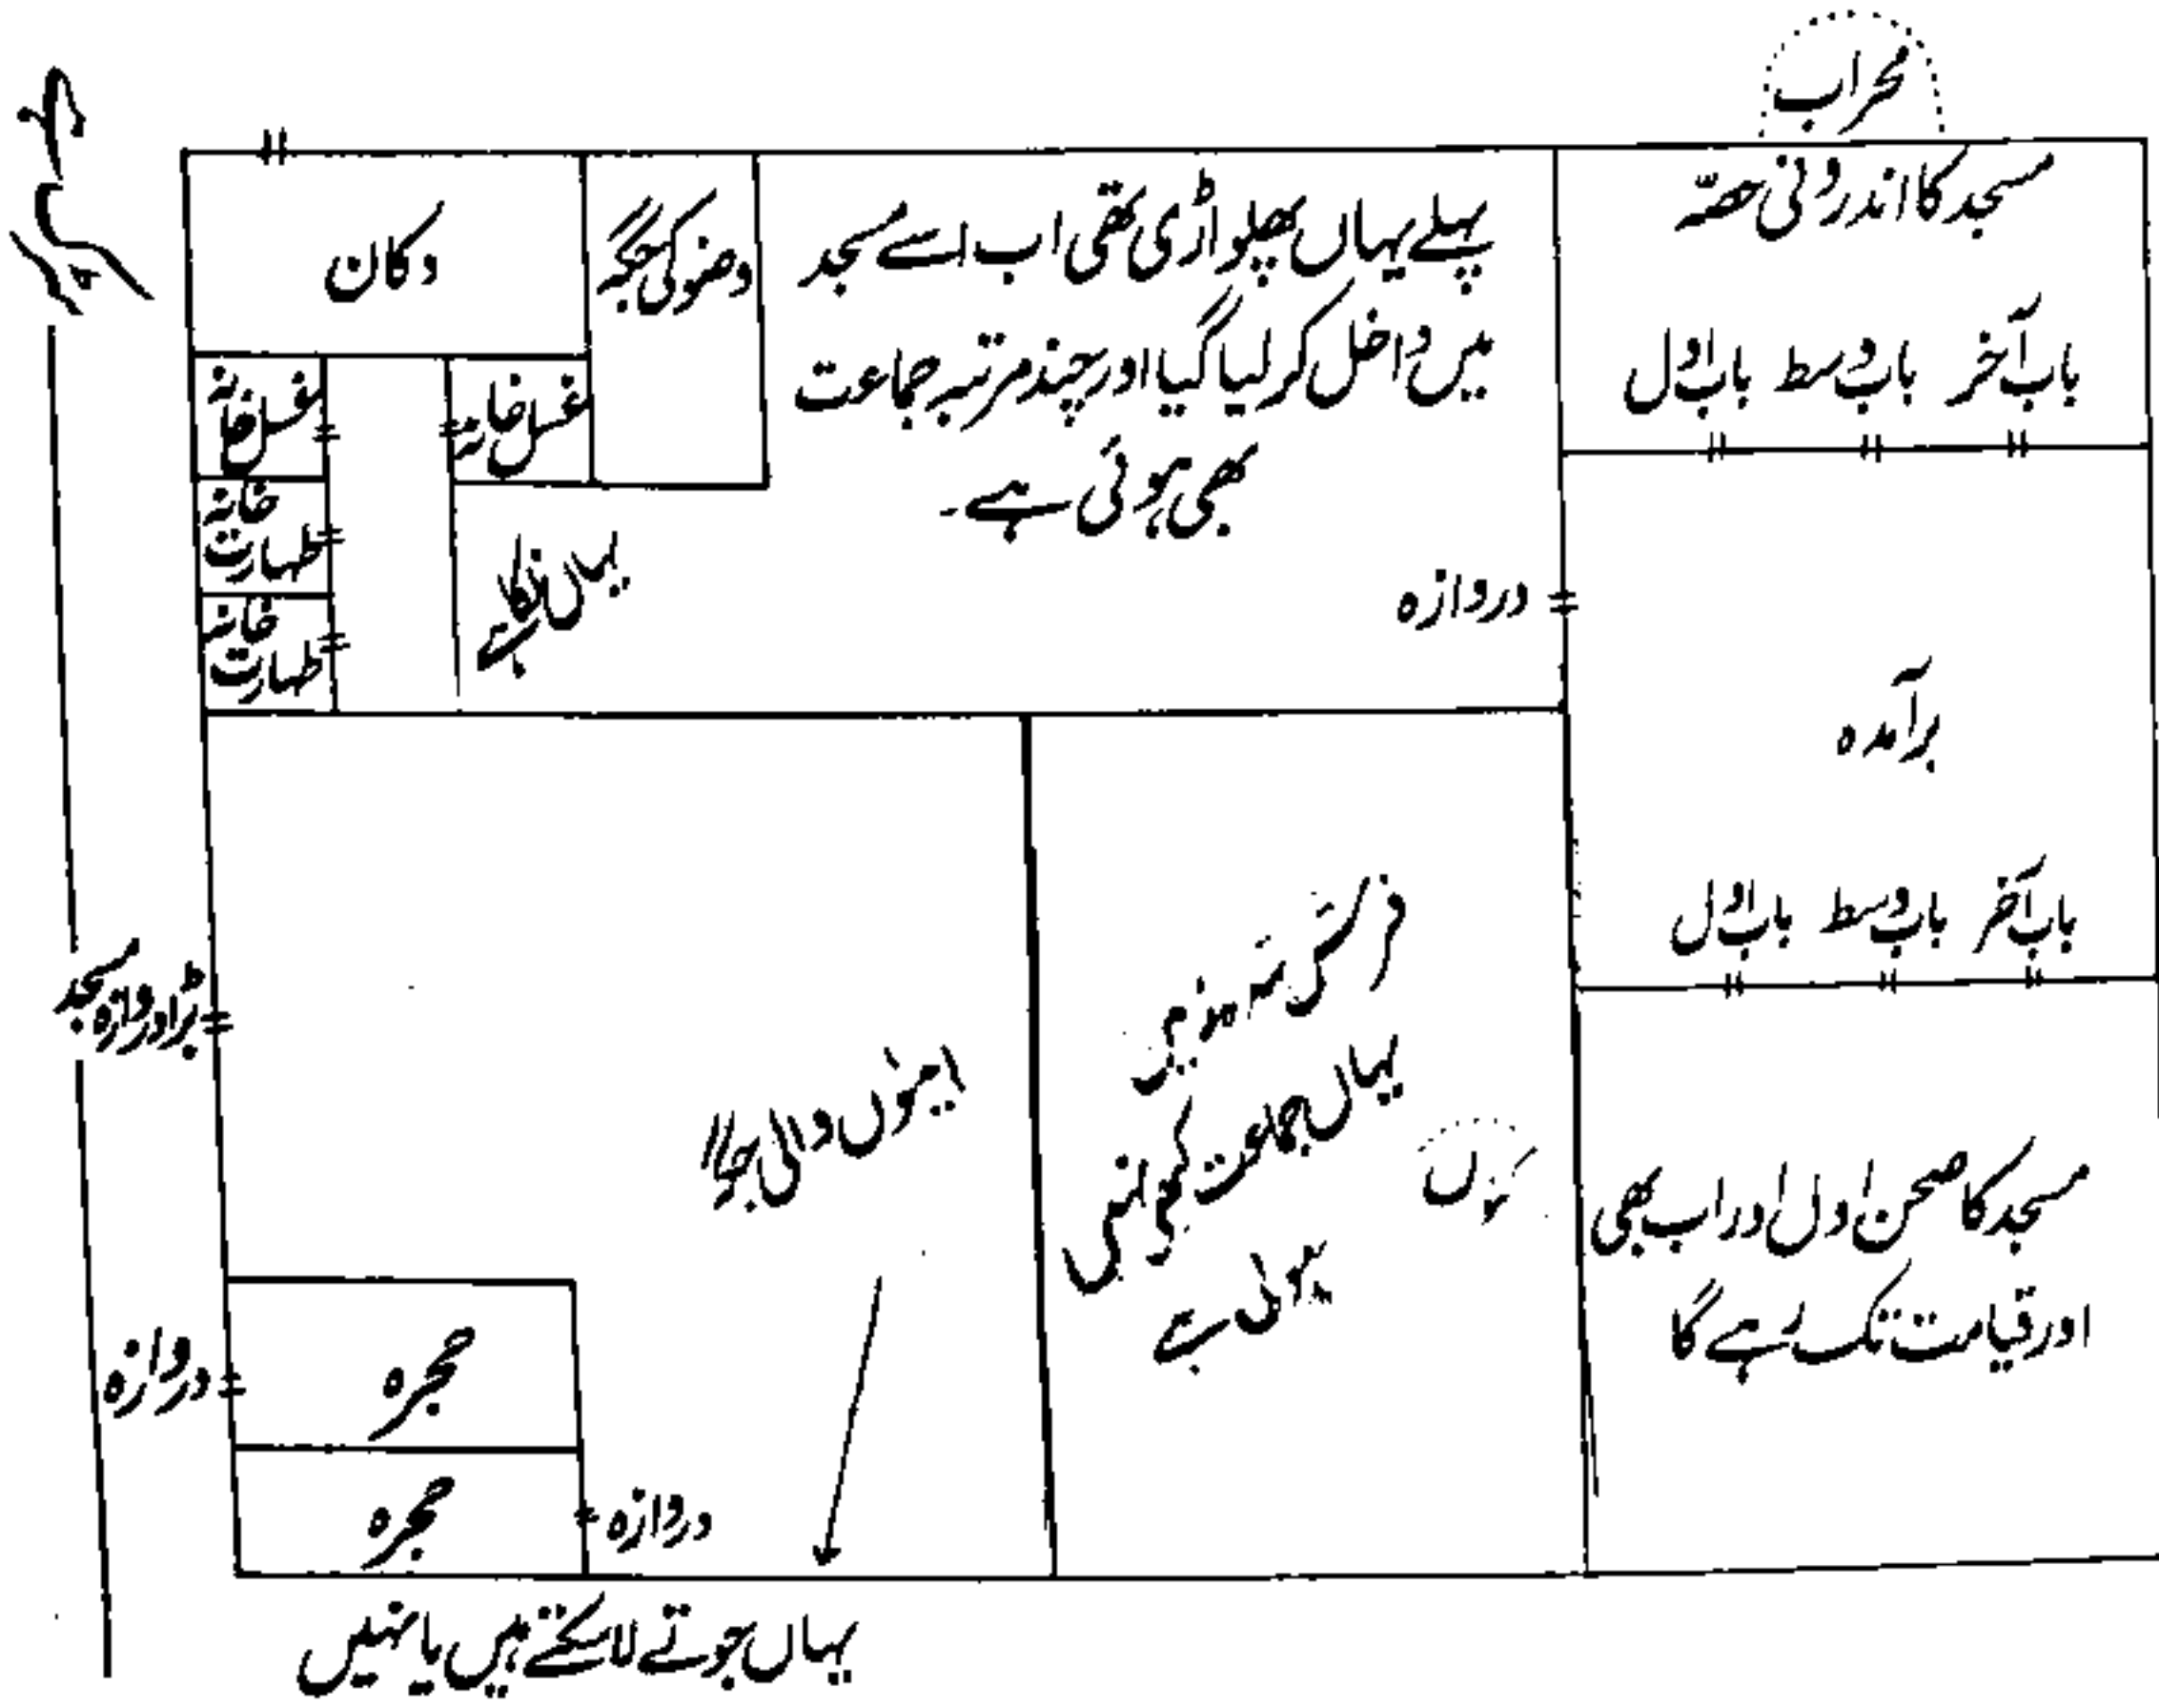 محراب
مسجد کا اندرونی حصّہ
باب آخر باب وسط باب اول
برآمدہ
باب آخر باب وسط باب اول
مسجد کا صحن اول اور اب بھی
اور قیامت تک رہے گا
پہلے یہاں پھلواڑی تھی اب اسے مسجد
میں داخل کر لیا گیا اور چند مرتبہ جماعت
بھی ہوئی ہے۔
دروازہ
وضو کی جگہ
دکان
غسل خانہ
غسل خانہ
خانہ
طہارت
خانہ
طہارت
یہاں نلکا ہے
فرش
یہاں جماعت کبھی نہیں
ہوئی ہے
اینٹوں والی جگہ
بڑا دروازہ مسجد
حجرہ
دروازہ
حجرہ
دروازہ
یہاں جوتے لا سکتے ہیں یا نہیں